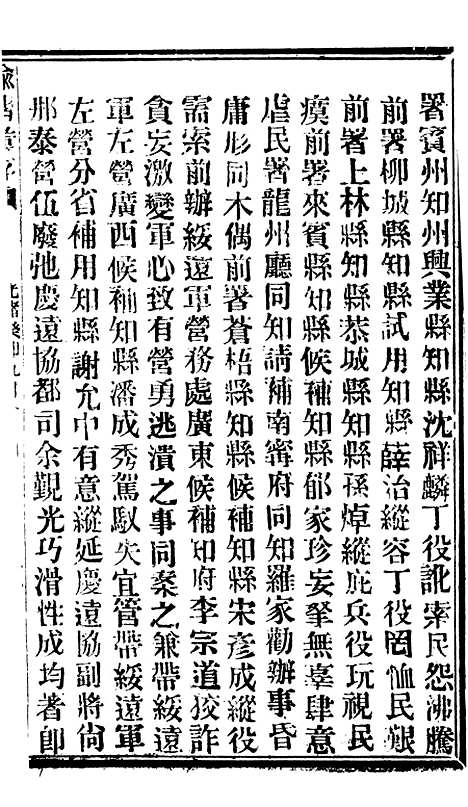 署賓州知州興業縣知縣沈祥麟丁役訛索民怨沸騰
前署柳城縣知縣試用知縣薛治縱容丁役罔恤民艱
前署上林縣知縣恭城縣知縣孫焯縱庇兵役玩視民
瘼前署來賓縣知縣候補知縣郁家珍妄拏無辜肆意
虐民署龍州廳同知請補南寗府同知羅家勸辦事昏
庸形同木偶前署蒼梧縣知縣候補知縣宋彥成縱役
需索前辦綏遠軍營務處廣東候補知府李宗道狡詐
貪妄激變軍心致有營勇逃潰之事同案之兼帶綏遠
軍左營廣西候補知縣潘成秀駕馭失宜管帶綏遠軍
左營分省補用知縣謝允中有意縱延慶遠協副將尙
那泰營伍廢弛慶遠協都司余覲光巧滑性成均著卽
諭摺彙存
光緒癸卯九月